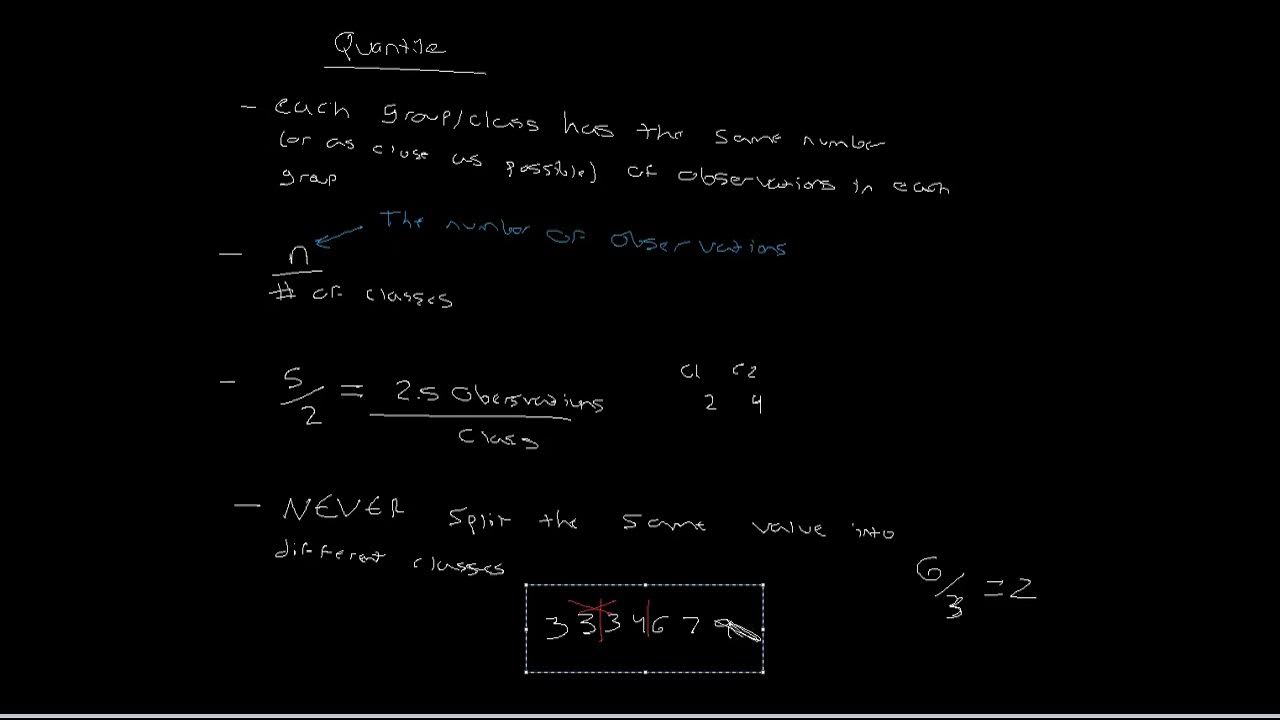 Quantile
- each group/class has the same number
(or as close as possible) of observations in each
group
The number of observations
- n
# of classes
C1 C2
- 5/2 = 2.5 Obersvations
2 4
Class
- NEVER split the same value into
different classes
6/3 = 2
3 3 3 4 6 7